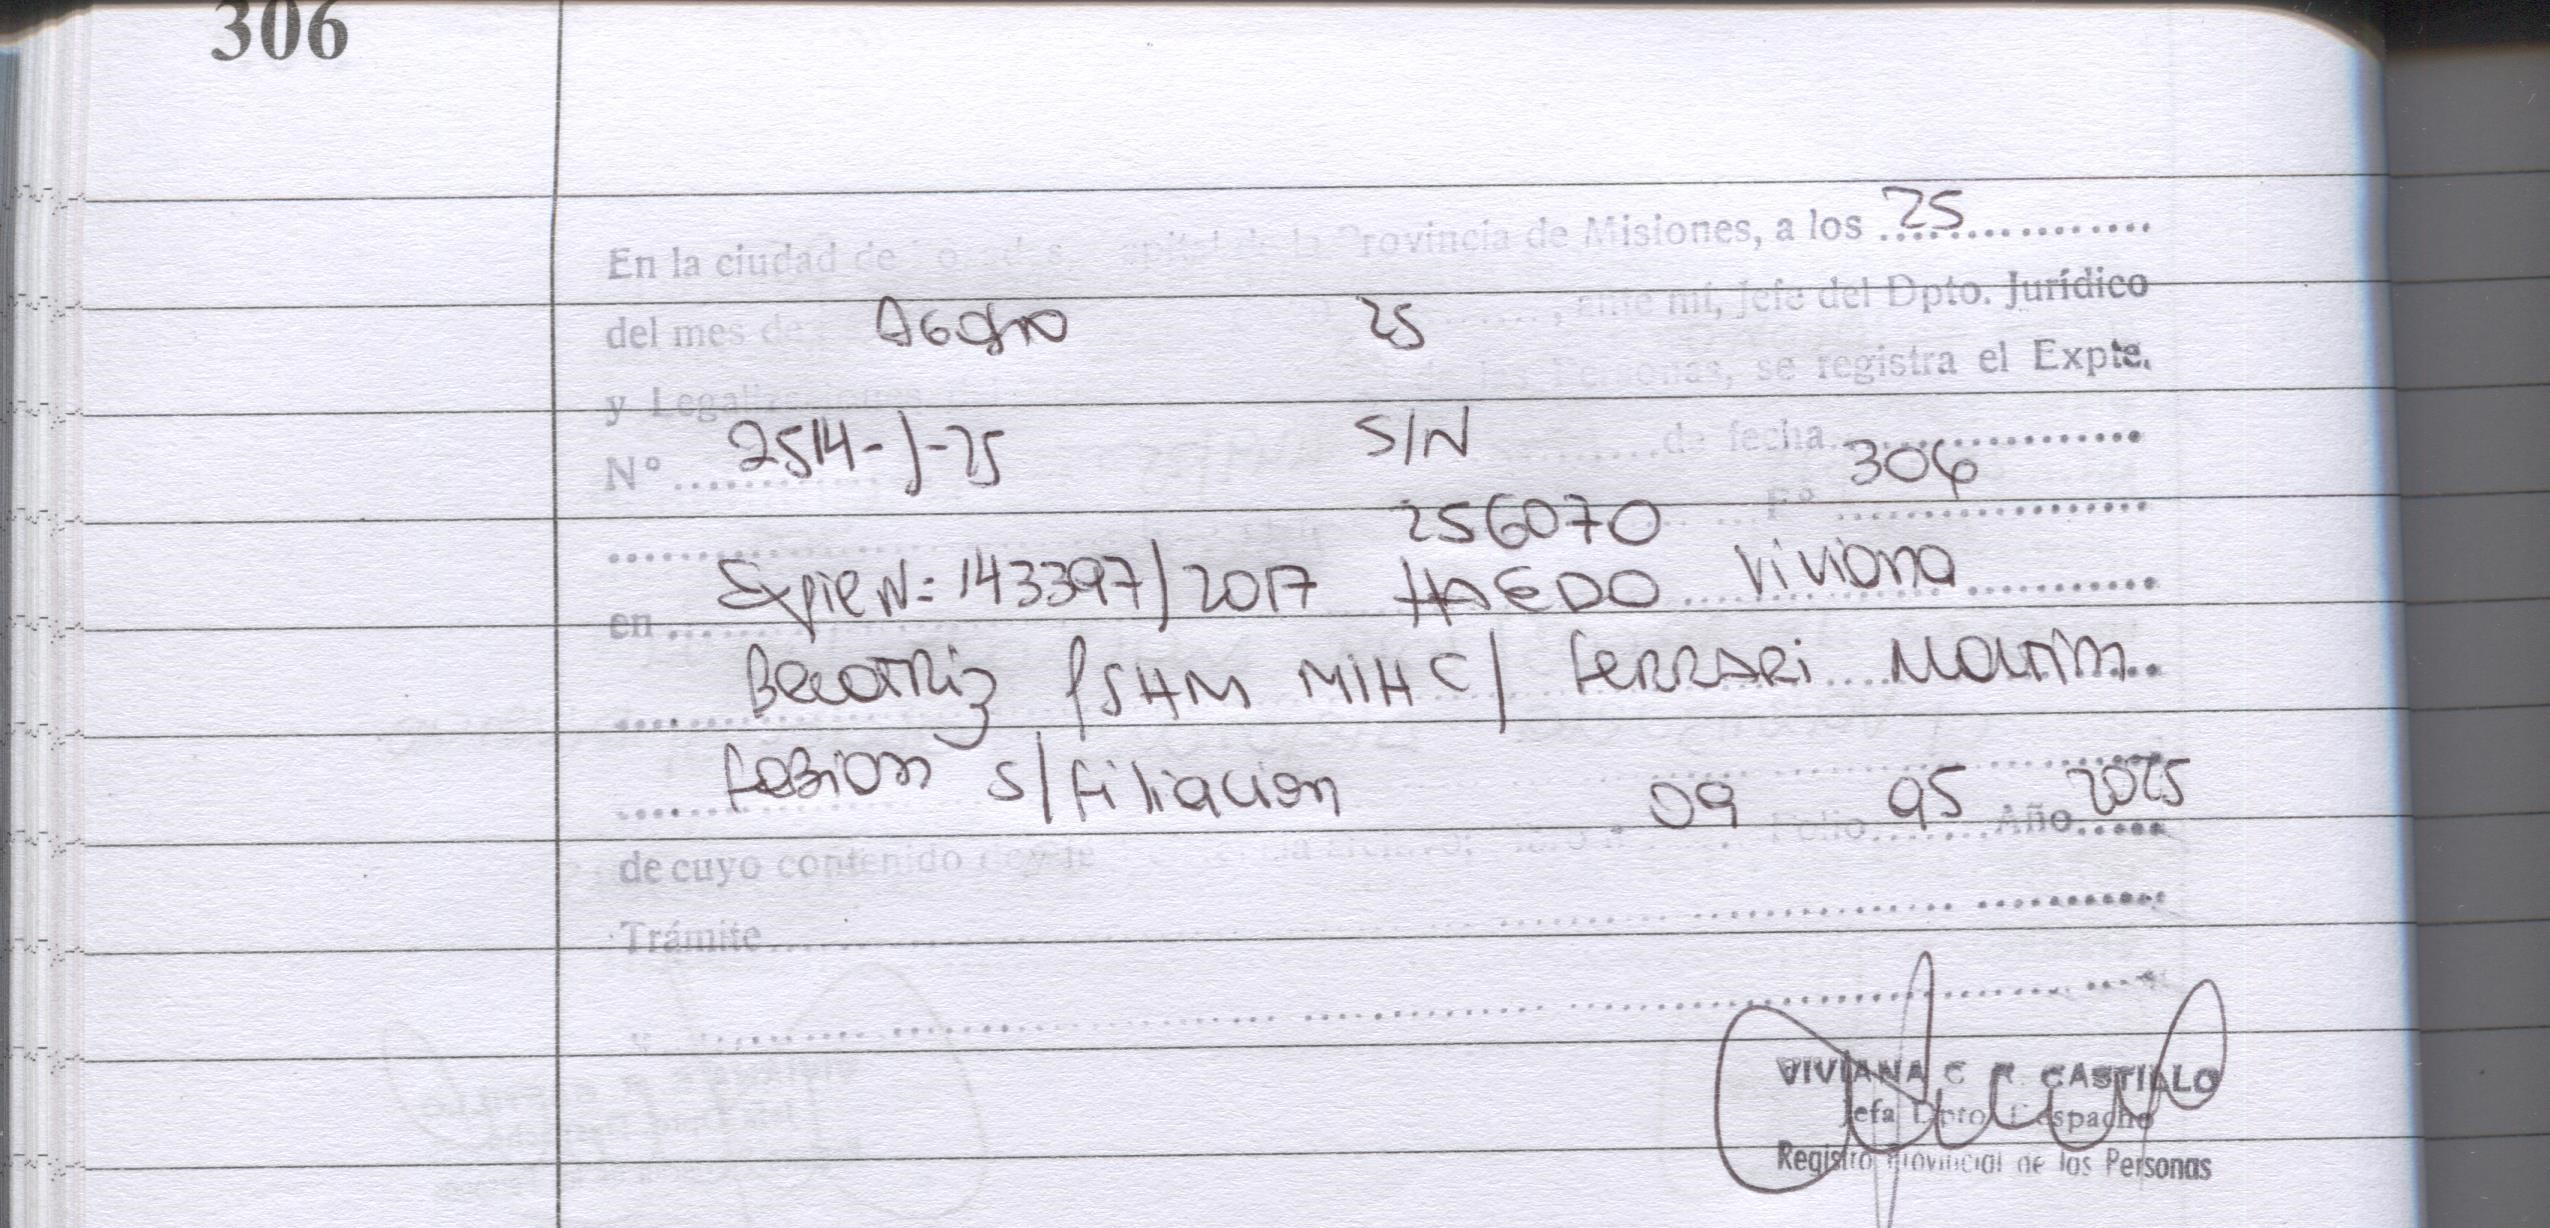 306
En la ciudad de Posadas, capital de la Provincia de Misiones, a los 25
del mes de Agosto 25, ante mí, Jefe del Dpto. Jurídico
y Legalizaciones de las Personas, se registra el Expte.
Nº 2514-J-25 S/N de fecha
256070 Fº 306
en Expte Nº: 143397/2017 HAEDO Viviana
Beatriz P/SHM MIHC/ FERRARI Martin
Fabian S/Filiacion 09 05 2025
de cuyo contenido doy fe Folio Año
Trámite
VIVIANA C R CASTILLO
Jefa Dpto Despacho
Registro Provincial de las Personas